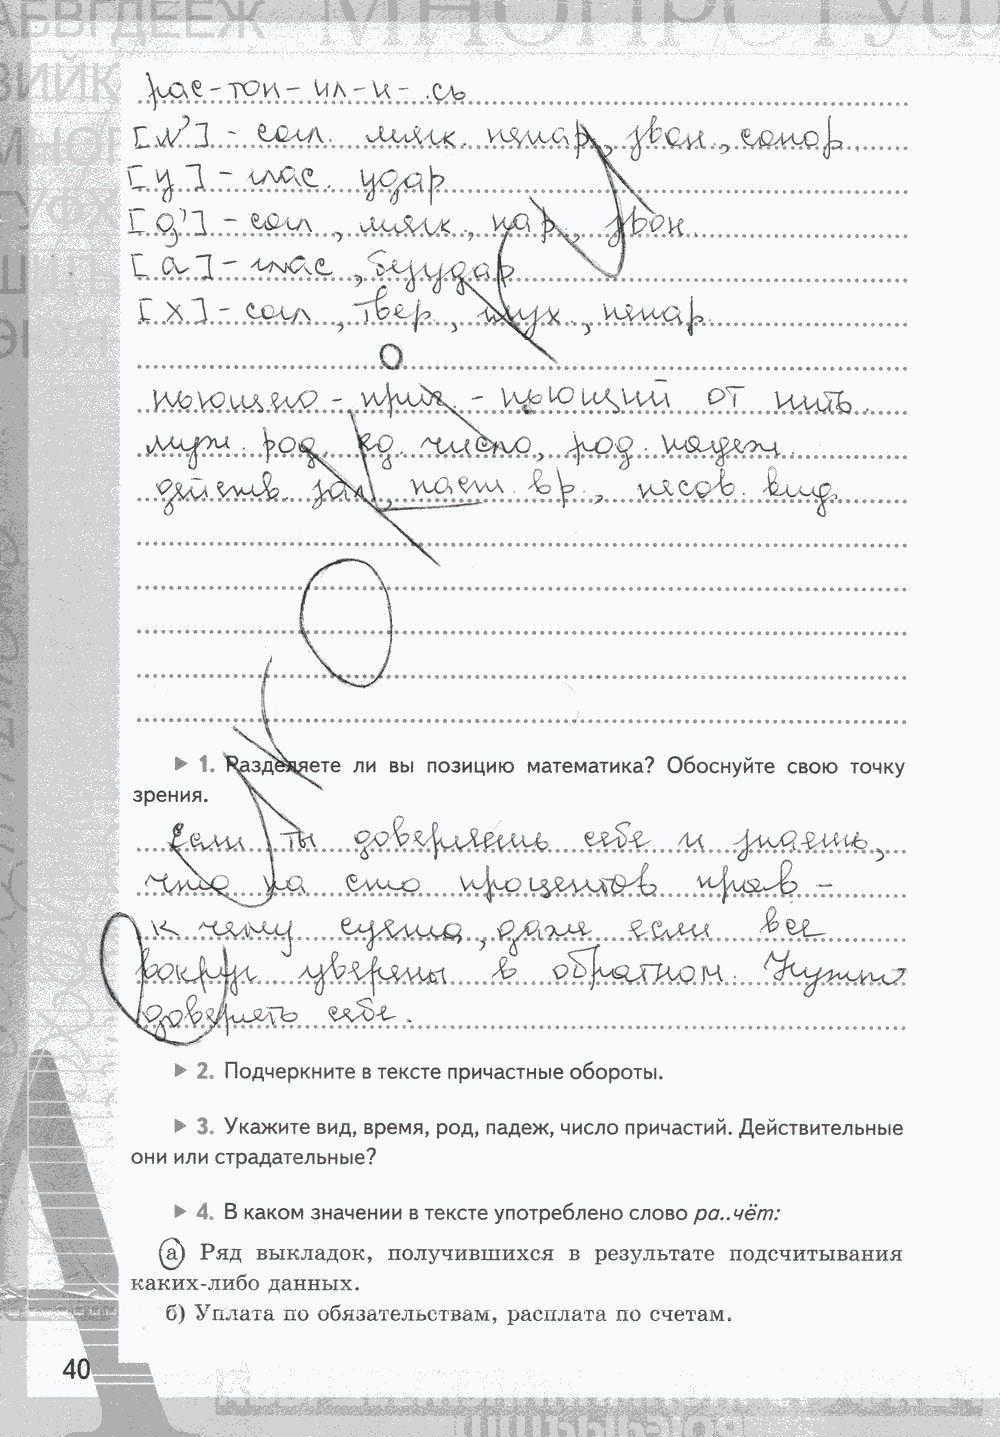 АБВГДЕЕЖ
МНОПРСТУФ
рас-топ-ил-и-сь
[л'] - согл. мягк. непар, звон., сонор.
[у] - глас. удар
[д'] - согл, мягк, пар, звон.
[а] - глас, безудар
[х] - согл, твер., глух., непар.
пьющего - прич. - пьющий от пить.
муж. род, ед. число, род. падеж.
действ. зал, наст. вр., несов. вид.
▶ 1. Разделяете ли вы позицию математика? Обоснуйте свою точку
зрения.
Если ты доверяешь себе и знаешь,
что на сто процентов прав -
к чему суета, даже если все
вокруг уверены в обратном. Нужно
доверять себе.
▶ 2. Подчеркните в тексте причастные обороты.
▶ 3. Укажите вид, время, род, падеж, число причастий. Действительные
они или страдательные?
▶ 4. В каком значении в тексте употреблено слово ра..чёт:
а) Ряд выкладок, получившихся в результате подсчитывания
каких-либо данных.
б) Уплата по обязательствам, расплата по счетам.
40